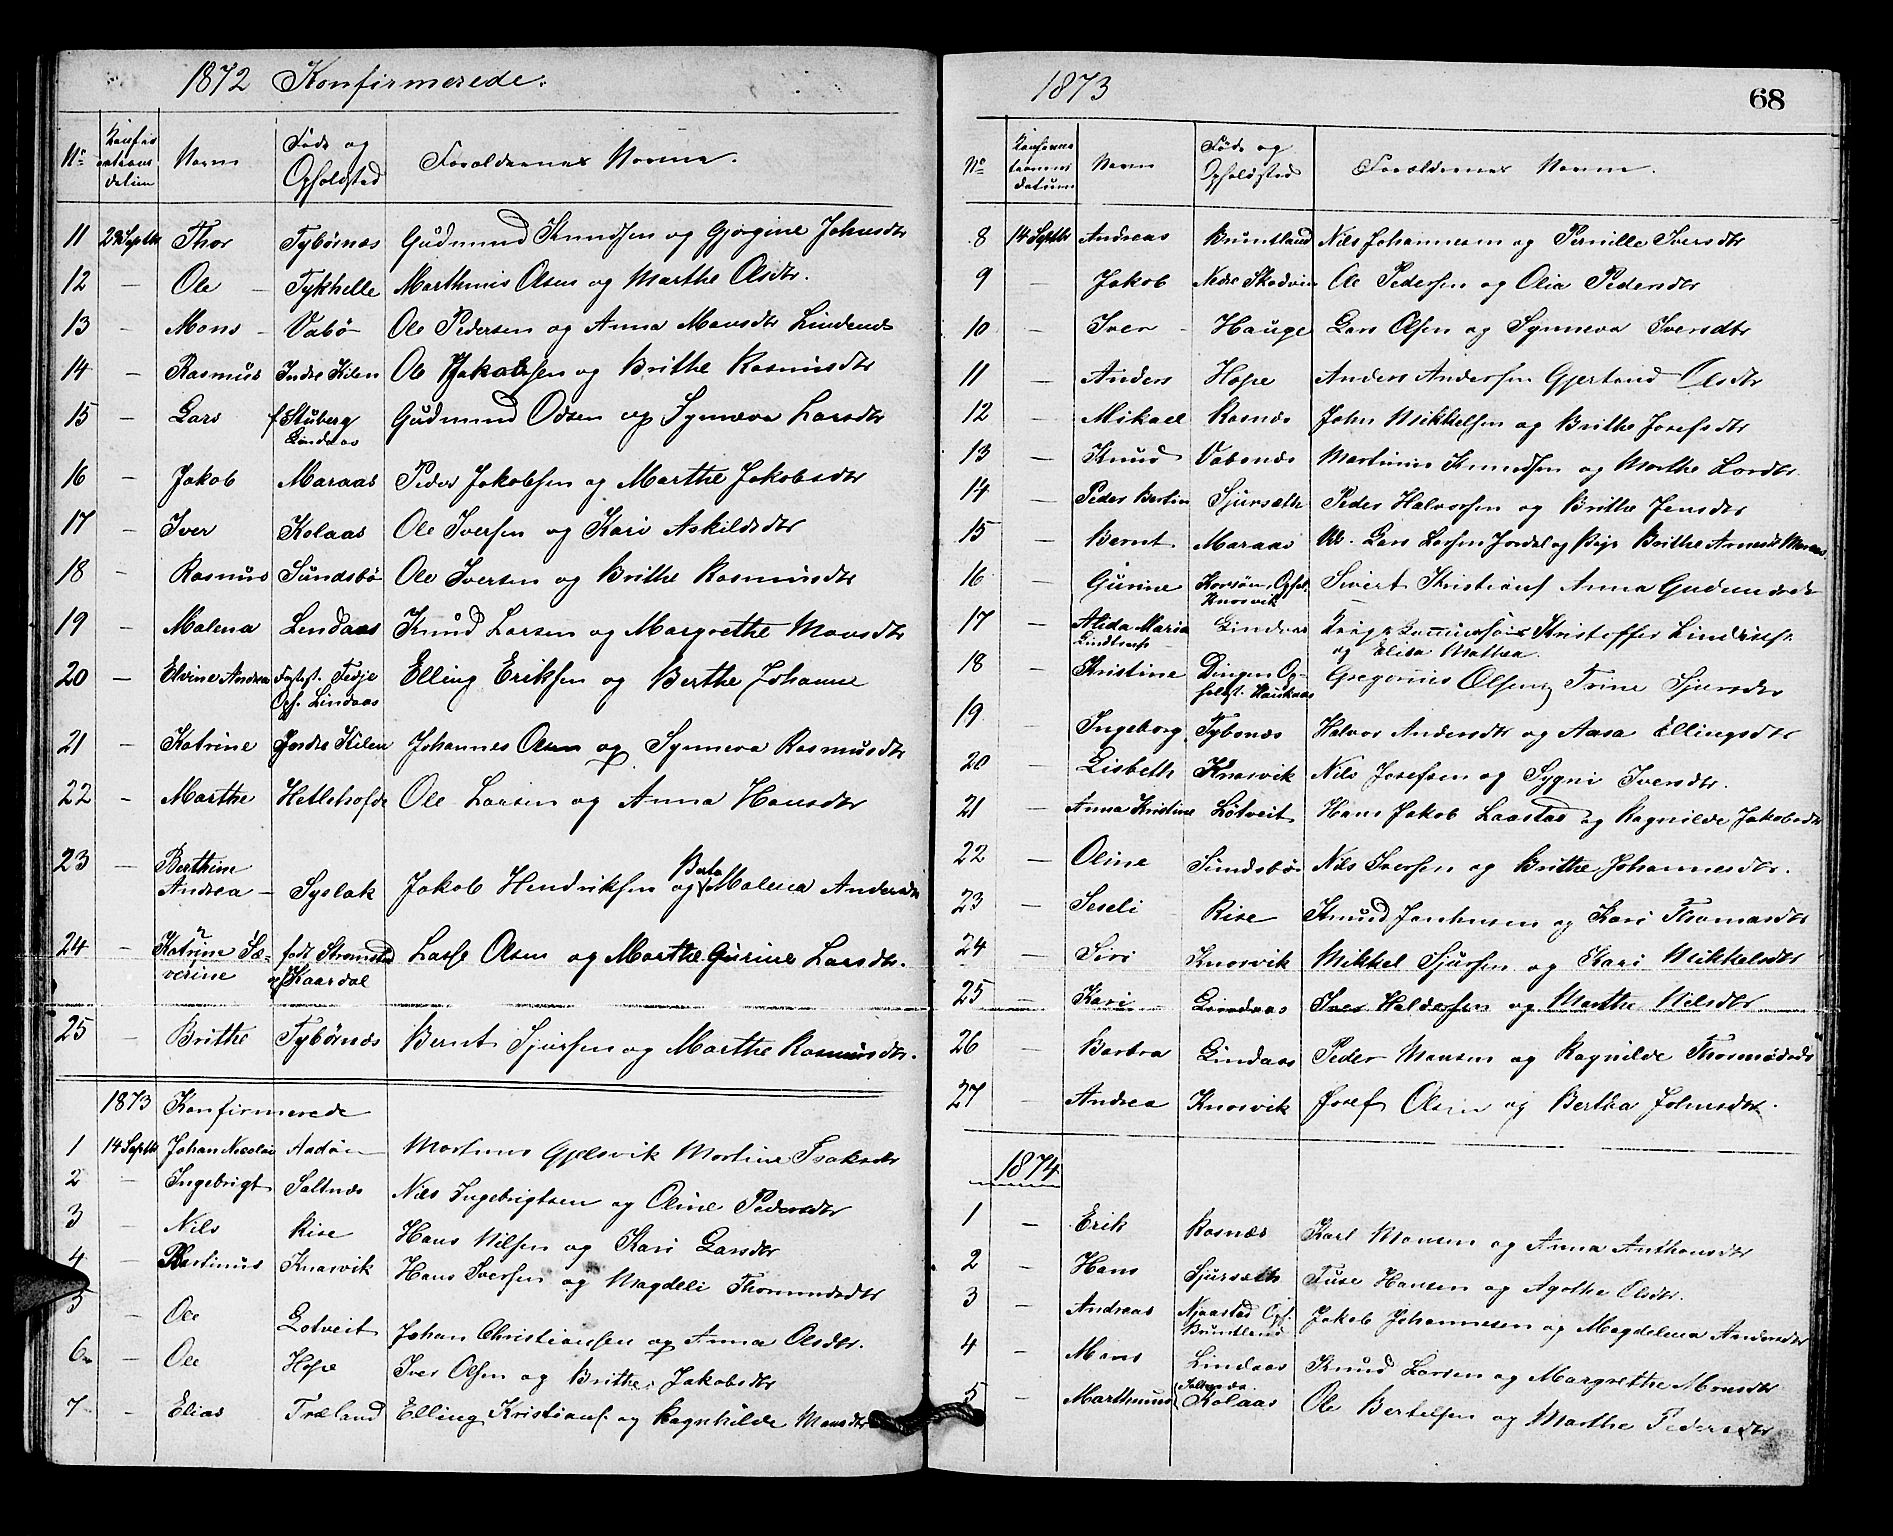 1872 Konfirmerede.
No Konfirmations datum Navn Føde og Opholdsted Forældrenes Navne.
11 Thor Tybørnæs Gudmund Knudsen og Gjørgine Johnsdtr
12 — Ole — Tykhelle Marthinus Olsen og Marthe Olsdtr.
13 — Mons — Vabø Ole Pedersen og Anna Monsdtr Lindaas
14 — Rasmus Indre Kilen Ole Jakobsen og Brithe Rasmusdtr
15 — Lars f Stuberg Lindaas Gudmund Odsen og Synneva Larsdtr
16 — Jakob Maraas Peder Jakobsen og Marthe Jakobsdtr
17 — Iver Kolaas Ole Iversen og Kari Askildsdtr
18 — Rasmus Sundsbø Ole Iversen og Brithe Rasmusdtr
19 — Malena Lindaas Knud Larsen og Margrethe Monsdtr
20 — Elvine Andrea Fødest. Fedje Oph. Lindaas Elling Eriksen og Berthe Johanne
21 — Katrine Indre Kilen Johannes Olsen og Synneva Rasmusdtr
22 — Marthe Ole Larsen og Anna Hansdtr
23 — Berthine Andrea — Syslak Jakob Hendriksen og Berta Malena Andersdtr
24 — Katrine Severine født Strømstad Kaardal Lasse Olsen og Marthe Gurine Larsdtr.
25 — Brithe Tybørnæs Bernt Sjursen og Marthe Rasmusdtr.
1873 Konfirmerede
1 14 Septbr Johan Nicolai Aadøen Martinus Gjelsvik Martine Isaksdtr
2 — Ingebrigt Saltnæs Nils Ingebrigtsen og Oline Pedersdtr
3 — Nils Rise Hans Nilsen og Kari Larsdtr
4 — Bertinus Knarvik Hans Iversen og Magdeli Thommesdtr
5 — Ole Lotveit Johan Christiansen og Anna Olsdtr.
6 — Ole Hope Iver Olsen og Brithe Jakobsdtr
7 — Elias Træland Elling Kristians. og Ragnhilde Monsdtr
1873
68
No Konfirmationens datum Navn Føde og Opholdsted Forældrenes Navne.
8 14 Septbr Andreas Bruntland Nils Johannesen og Pernille Iversdtr
9 — Jakob Nedre Skodvin Ole Pedersen og Olia Pedersdtr
10 — Iver — Hauge Lars Olsen og Synneva Iversdtr
11 — Anders Hope Anders Andersen Gjertrud Olsdtr
12 — Mikael Rosnæs John Mikkelsen og Brithe Josefsdtr
13 — Knud Vabenæs Martinus Knudsen og Marthe Larsdtr
14 — Peder Bertin Sjursæth Peder Halvorsen og Brithe Jensdtr
15 — Bernt Maraas Lars Larsen Jordal og Pige Brithe Arnesdtr Maraas
16 — Gurine Korsøen, Ophst. Knarvik Sivert Kristians Anna Gudmundsdtr
17 — Alida Maria Lindtner Lindaas Kristoffer Lindtner og Elisa Mathea
18 — Kristine Dingen Opholdst. Gregorius Olsen og Trine Sjursdtr
19 — Ingeborg Tybønæs Halvor Andersdtr og Aasa Ellingsdtr
20 — Lisbeth Knarvik Nils Josefsen og Sygni Iversdtr.
21 — Anna Kristine Løtveit Hans Jakob Laastad og Ragnilde Jakobsdtr
22 — Oline Sundsbø Nils Iversen og Brithe Johannesdtr.
23 — Seseli Rise Knud Jonhnsen og Kari Thomasdtr
24 — Siri Knarvik Mikkel Sjursen og Kari Mikkelsdtr
25 — Kari Lindaas Iver Haldorsen og Marthe Nilsdtr
26 — Barbra Lindaas Peder Monsen og Ragnilde Thormodsd
27 — Andrea Knarvik Josef Olsen og Bertha Johnsdtr.
1874
1 — Erik Rosnæs Karl Monsen og Anna Anthonsdtr
2 — Hans Sjursæth Tuse Hansen og Agathe Olsdtr.
3 — Andreas Njaastad Oph. Bruntland Jakob Johannesen og Magdelena Andersdtr
4 — Mons Lindaas Knud Larsen og Margrethe Monsdtr
5 — Marthinus Kolaas Ole Bertelsen og Marthe Pedersdtr